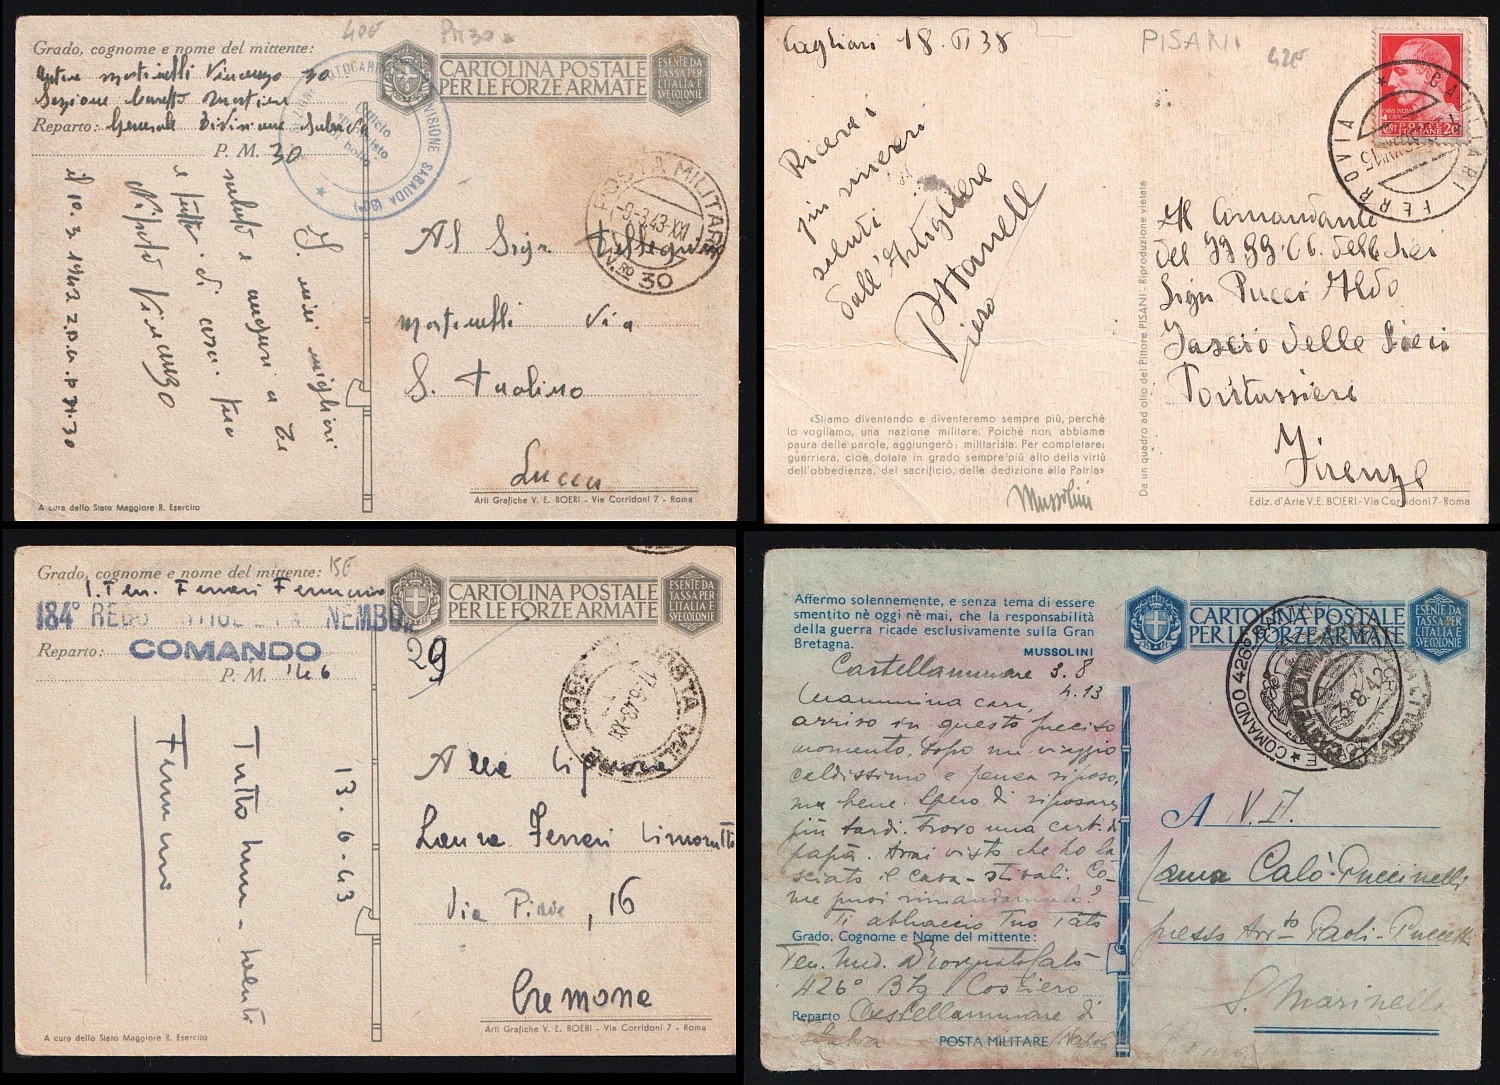 40E
PM 30
Grado, cognome e nome del mittente:
Martinelli Vincenzo 30
Sezione
Reparto: Generale Divisione Sabauda
P. M. 30
CARTOLINA POSTALE
PER LE FORZE ARMATE
ESENTE DA
TASSA PER
L'ITALIA E
SVE COLONIE
DIVISIONE SABAUDA (30ª)
Ufficio
POSTA MILITARE
-9-3.43-XXI
N.RO 30
I miei migliori
saluti e auguri a Te
e tutti di casa. tuo
Nipote Vincenzo
il 10. 3. 1942
Al Sigr
Martinelli Via
S. Paolino
Lucca
A cura dello Stato Maggiore R. Esercito
Arti Grafiche V. E. BOERI - Via Corridoni 7 - Roma
Cagliari 18. II 38
PISANI
42E
POSTE
ITALIANE 20
CAGLIARI
FERROVIA
Ricevi
più sinceri
saluti
dall'Artigliere
Piero
Al Comandante
del GG.FF.CC. delle
Sigr Pucci Aldo
Fascio delle
Firenze
«Stiamo diventando e diventeremo sempre più, perchè
lo vogliamo, una nazione militare. Poichè non abbiamo
paura delle parole, aggiungerò: militarista. Per completare:
guerriera, cioè dotata in grado sempre più alto della virtù
dell'obbedienza, del sacrificio, della dedizione alla Patria»
Mussolini
Da un quadro ad olio del Pittore PISANI - Riproduzione vietata
Ediz. d'Arte V. E. BOERI - Via Corridoni 7 - Roma
15E
Grado, cognome e nome del mittente:
S. Ten. Ferrari Ferruccio
184° REGG NEMBO
COMANDO
Reparto:
P. M. 146
CARTOLINA POSTALE
PER LE FORZE ARMATE
ESENTE DA
TASSA PER
L'ITALIA E
SVE COLONIE
29
POSTA MIL
17-6.43-XXI
Tutto bene - saluti
Ferruccio
13-6-43
Alla Signora
Laura Ferrari Simonetti
Via Piave, 16
Cremona
A cura dello Stato Maggiore R. Esercito
Arti Grafiche V. E. BOERI - Via Corridoni 7 - Roma
Affermo solennemente, e senza tema di essere
smentito nè oggi nè mai, che la responsabilità
della guerra ricade esclusivamente sulla Gran
Bretagna.
MUSSOLINI
CARTOLINA POSTALE
PER LE FORZE ARMATE
ESENTE DA
TASSA PER
L'ITALIA E
SVE COLONIE
COMANDO 426°
3.8.42
Castellammare 3.8
h. 13
Mammina cara,
arrivo in questo preciso
momento, dopo un viaggio
caldissimo e senza riposo,
ma bene. Spero di riposare
più tardi. Trovo una cart. di
papà. Avrai visto che ho la
sciato il cava-stivali. Co-
me puoi rimandarmelo?
Ti abbraccio Tuo Tato
Grado, Cognome e Nome del mittente:
Ten. Med. Calò
426° Btg Costiero
Reparto Castellammare di
Stabia
POSTA MILITARE Napoli
A V. I.
Calò-Puccinelli
presso Avv.to Paoli-Puccetti
S. Marinella